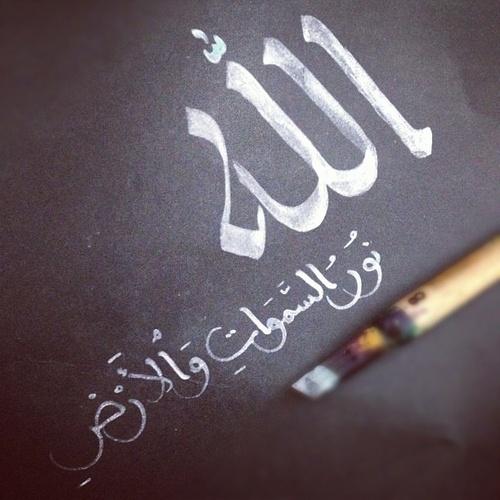 اللّٰهُ
نُورُ السَّمَوَاتِ وَالْأَرْضِ